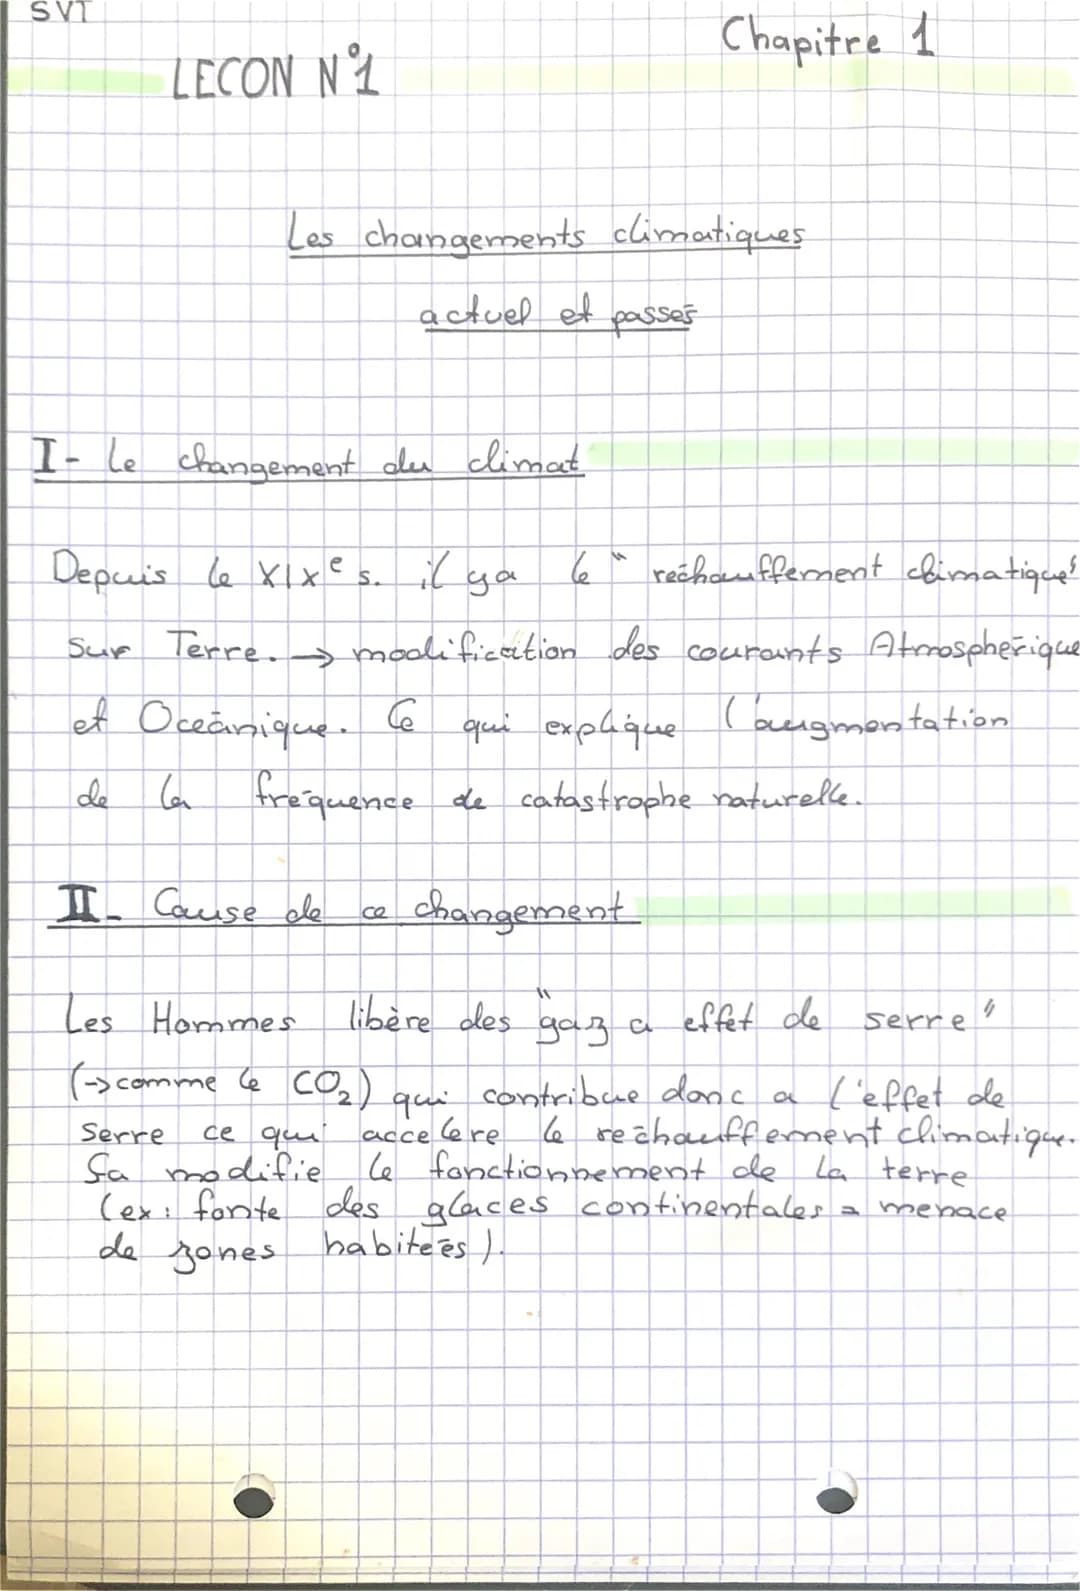 SVT
Chapitre 1
LECON N°1
Les changements climatiques
actuel et passés
I- Le changement du climat
Depuis le XIXe s. il ya le "réchauffement climatique"
sur Terre. → modification des courants Atmosphérique
et Océanique. Ce qui explique l'augmentation
de la fréquence de catastrophe naturelle.
II- Cause de ce changement
Les Hommes libère des "gaz a effet de serre"
(→comme le CO2) qui contribue donc a l'effet de
serre ce qui accelere le réchauffement climatique.
Sa modifie le fonctionnement de la terre
(ex: fonte des glaces continentales = menace
de zones habitées).